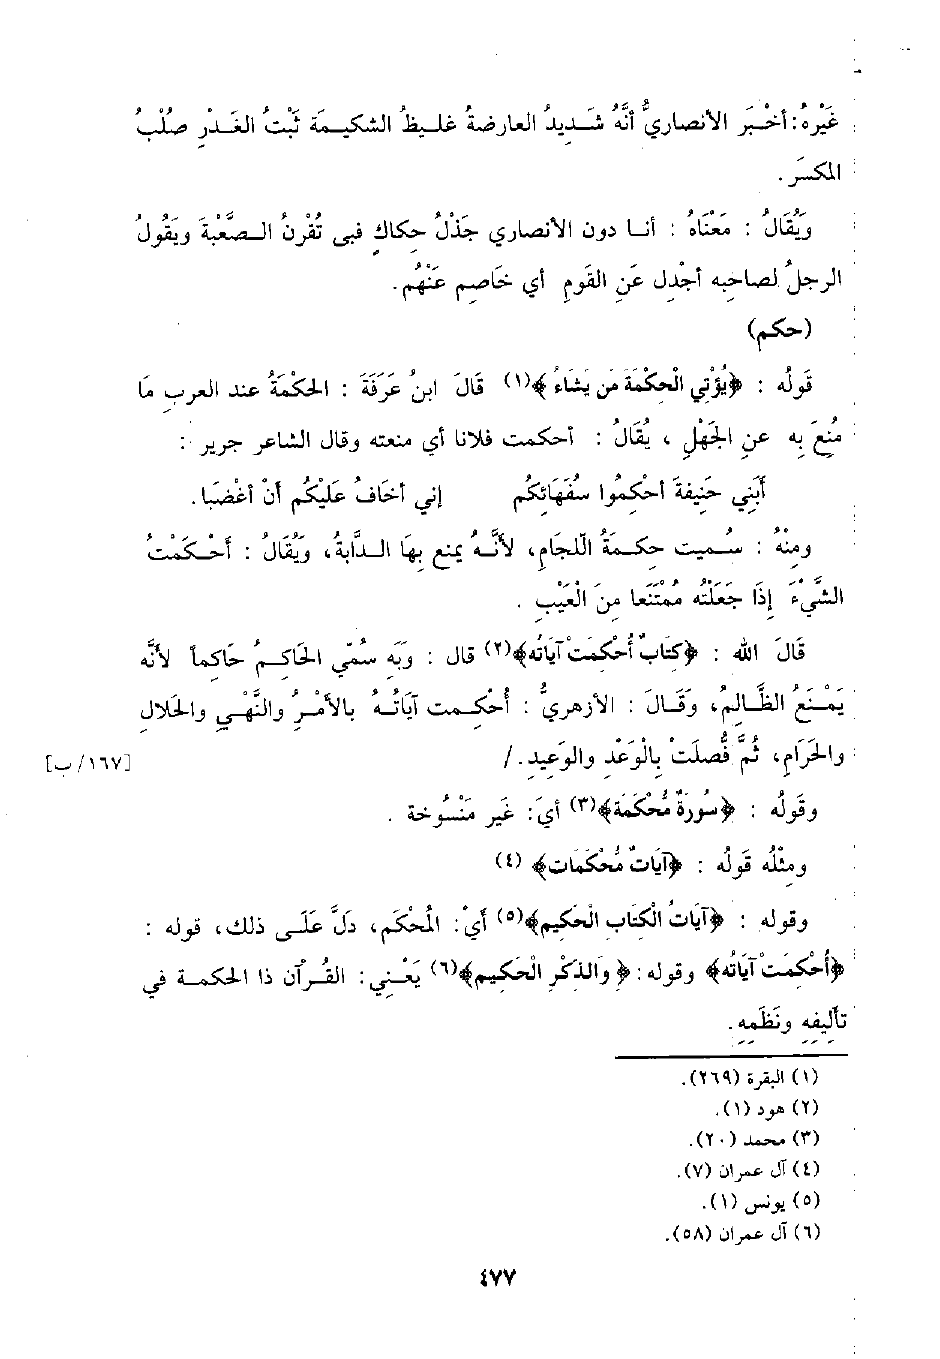 غَيْرُهُ: أخْبَر الأنصاريُّ أنَّهُ شَديدُ العارضةُ غليظُ الشكيمة ثَبْتُ الغَدْرِ صلْبُ
المكسَر.
وَيُقَالُ : مَعْنَاهُ : أنا دون الأنصاري جَذْلُ حِكاكٍ فبى تُقْرنُ الصَّعْبةَ ويَقُولُ
الرجلُ لصاحبِه أجْدِل عَنِ القَومِ أي خَاصِم عَنْهُم.
(حكم)
قولُه : ﴿يُؤْتِي الْحِكْمَةَ مَن يَشَاءُ﴾(١) قَالَ ابنُ عَرَفَةَ : الحَكْمَةُ عند العربِ مَا
مُنِعَ بِه عنِ الجَهْلِ ، يُقَالُ : أحكمت فلانا أي منعته وقال الشاعر جرير :
أَبَنِي حَنِيفَةَ أحْكِمُوا سُفَهَائكُم إني أخَافُ عَلَيْكُم أنْ أغْضَبَا.
ومنْهُ : سُميت حِكمةُ اللّجامِ، لأنَّهُ يمنع بِهَا الدَّابةُ، وَيُقَالُ : أحْكمْتُ
الشَّيْءَ إِذَا جَعَلْتُه مُمْتَنَعا مِنَ الْعَيْبِ .
قَالَ اللهُ : ﴿كِتَابٌ أُحْكِمَتْ آيَاتُه﴾(٢) قال : وَبه سُمّي الحَاكِمُ حَاكِماً لأنَّه
يَمْنَعُ الظَّالِمُ، وَقَالَ : الأزهريُّ : أُحْكِمت آيَاتُهُ بالأمْرُ والنَّهْي والحَلال
والحَرَامِ، ثُمَّ فُصِّلَتْ بِالْوَعْد والوَعِيدِ./
[١٦٧/ب]
وقَولُه : ﴿سُورَةٌ مُّحْكَمَة﴾(٣) أيَ: غَير مَنْسُوخة .
ومثلُه قَولُه : ﴿آيَاتٌ مُّحْكَمَات﴾ (٤)
وقوله : ﴿آيَاتُ الْكِتَابِ الْحَكِيمِ﴾(٥) أيْ: المُحْكَمِ، دَلَّ عَلَى ذلك، قوله :
﴿أُحْكِمَتْ آيَاتُه﴾ وقوله: ﴿ وَالذِّكْرِ الْحَكِيمِ﴾(٦) يَعْنِي: القُرآن ذا الحكمة في
تأليفِهِ ونَظْمِهِ.
(١) البقرة (٢٦٩).
(٢) هود (١).
(٣) محمد (٢٠).
(٤) آل عمران (٧).
(٥) يونس (١).
(٦) آل عمران (٥٨).
٤٧٧